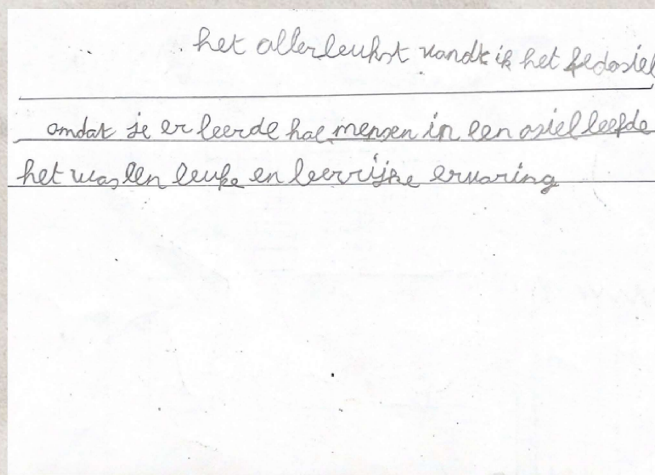 het allerleukst vandt ik het fedasiel
omdat je er leerde hoe mensen in een asiel leefde
het was een leuke en leerrijke ervaring